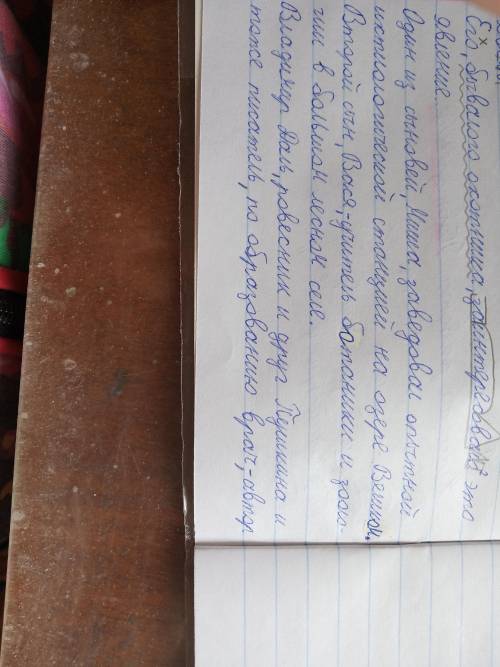 Его, бывалого охотника, заинтересовало это
явление.
Один из сыновей, Миша, заведовал опытной
ихтиологической станцией на озере Великом.
Второй сын, Вася-учитель ботаники и зооло-
гии в большом лесном селе.
Владимир Даль, ровесник и друг Пушкина и
тоже писатель, по образованию врач,-автор